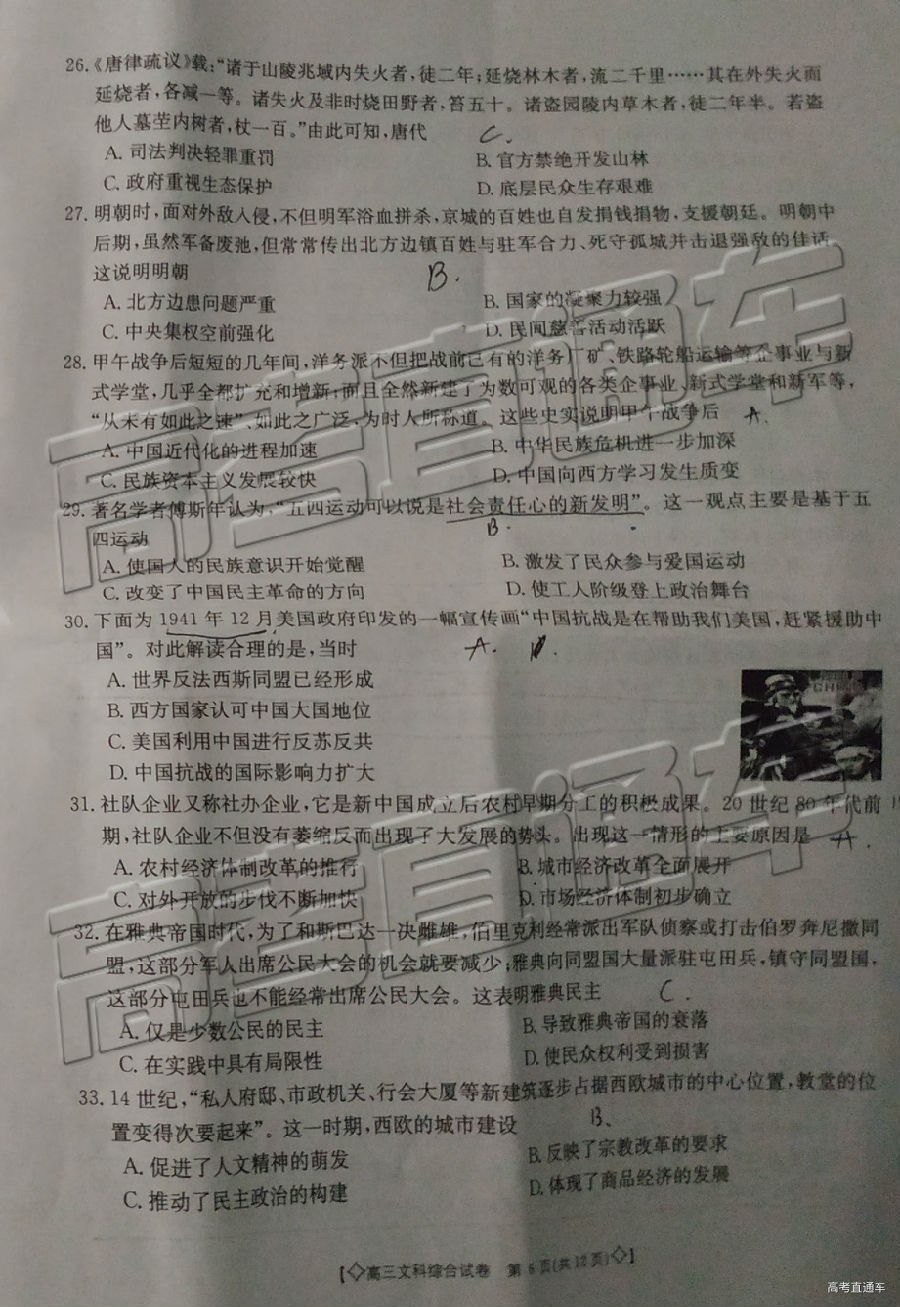 26.《唐律疏议》载:“诸于山陵兆域内失火者,徒二年;延烧林木者,流二千里……其在外失火而
延烧者,各减一等。诸失火及非时烧田野者,笞五十。诸盗园陵内草木者,徒二年半。若盗
他人墓茔内树者,杖一百。”由此可知,唐代 C.
A. 司法判决轻罪重罚 B. 官方禁绝开发山林
C. 政府重视生态保护 D. 底层民众生存艰难
27. 明朝时,面对外敌入侵,不但明军浴血拼杀,京城的百姓也自发捐钱捐物,支援朝廷。明朝中
后期,虽然军备废弛,但常常传出北方边镇百姓与驻军合力、死守孤城并击退强敌的佳话。
这说明明朝 B.
A. 北方边患问题严重 B. 国家的凝聚力较强
C. 中央集权空前强化 D. 民间慈善活动活跃
28. 甲午战争后短短的几年间,洋务派不但把战前已有的洋务厂矿、铁路轮船运输等企事业与新
式学堂,几乎全都扩充和增新;而且全然新建了为数可观的各类企事业、新式学堂和新军等,
“从未有如此之速”、如此之广泛,为时人所称道。这些史实说明甲午战争后 A.
A. 中国近代化的进程加速 B. 中华民族危机进一步加深
C. 民族资本主义发展较快 D. 中国向西方学习发生质变
29. 著名学者傅斯年认为,“五四运动可以说是社会责任心的新发明”。这一观点主要是基于五
四运动 B.
A. 使国人的民族意识开始觉醒 B. 激发了民众参与爱国运动
C. 改变了中国民主革命的方向 D. 使工人阶级登上政治舞台
30. 下面为 1941 年 12 月美国政府印发的一幅宣传画“中国抗战是在帮助我们美国,赶紧援助中
国”。对此解读合理的是,当时 A. D.
A. 世界反法西斯同盟已经形成
B. 西方国家认可中国大国地位
C. 美国利用中国进行反苏反共
D. 中国抗战的国际影响力扩大
31. 社队企业又称社办企业,它是新中国成立后农村早期分工的积极成果。20 世纪 80 年代前
期,社队企业不但没有萎缩反而出现了大发展的势头。出现这一情形的主要原因是 A.
A. 农村经济体制改革的推行 B. 城市经济改革全面展开
C. 对外开放的步伐不断加快 D. 市场经济体制初步确立
32. 在雅典帝国时代,为了和斯巴达一决雌雄,伯里克利经常派出军队侦察或打击伯罗奔尼撒同
盟,这部分军人出席公民大会的机会就要减少;雅典向同盟国大量派驻屯田兵,镇守同盟国,
这部分屯田兵也不能经常出席公民大会。这表明雅典民主 C.
A. 仅是少数公民的民主 B. 导致雅典帝国的衰落
C. 在实践中具有局限性 D. 使民众权利受到损害
33. 14 世纪,“私人府邸、市政机关、行会大厦等新建筑逐步占据西欧城市的中心位置,教堂的位
置变得次要起来”。这一时期,西欧的城市建设 B、
A. 促进了人文精神的萌发 B. 反映了宗教改革的要求
C. 推动了民主政治的构建 D. 体现了商品经济的发展
【◇高三文科综合试卷 第 6 页(共 12 页)◇】
高考直通车
高考直通车
高考直通车